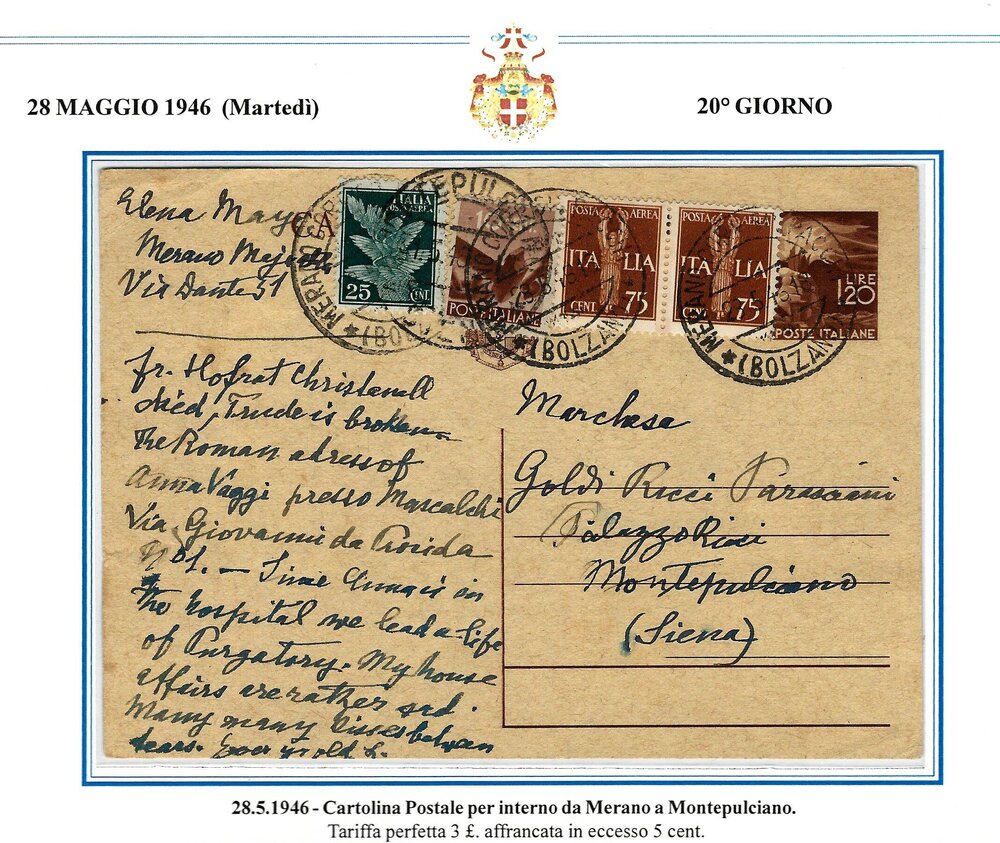 28 MAGGIO 1946 (Martedì)
20° GIORNO
Elena May
Merano
Via Dante 51
CA
ITALIA
POSTA AEREA
25 CENT.
POSTE ITALIANE
POSTA AEREA
ITALIA
CENT. 75
POSTA AEREA
ITALIA
CENT. 75
LIRE
1.20
POSTE ITALIANE
MERANO
(BOLZANO)
TEPULC
MERANO
(BOLZAN
MERANO
(BOLZAN
fr. Hofrat Christanell
died, Trude is broken.
The Roman adress of
Anna Vaggi presso Marcalchi
Via Giovanni da Procida
No 1. — Since in
the hospital we lead a life
of Purgatory. My house
affairs are rather sad.
Many many kisses between
tears. Ever yr old E.
Marchesa
Goldi Ricci Parasciani
Palazzo Ricci
Montepulciano
(Siena)
28.5.1946 - Cartolina Postale per interno da Merano a Montepulciano.
Tariffa perfetta 3 £. affrancata in eccesso 5 cent.